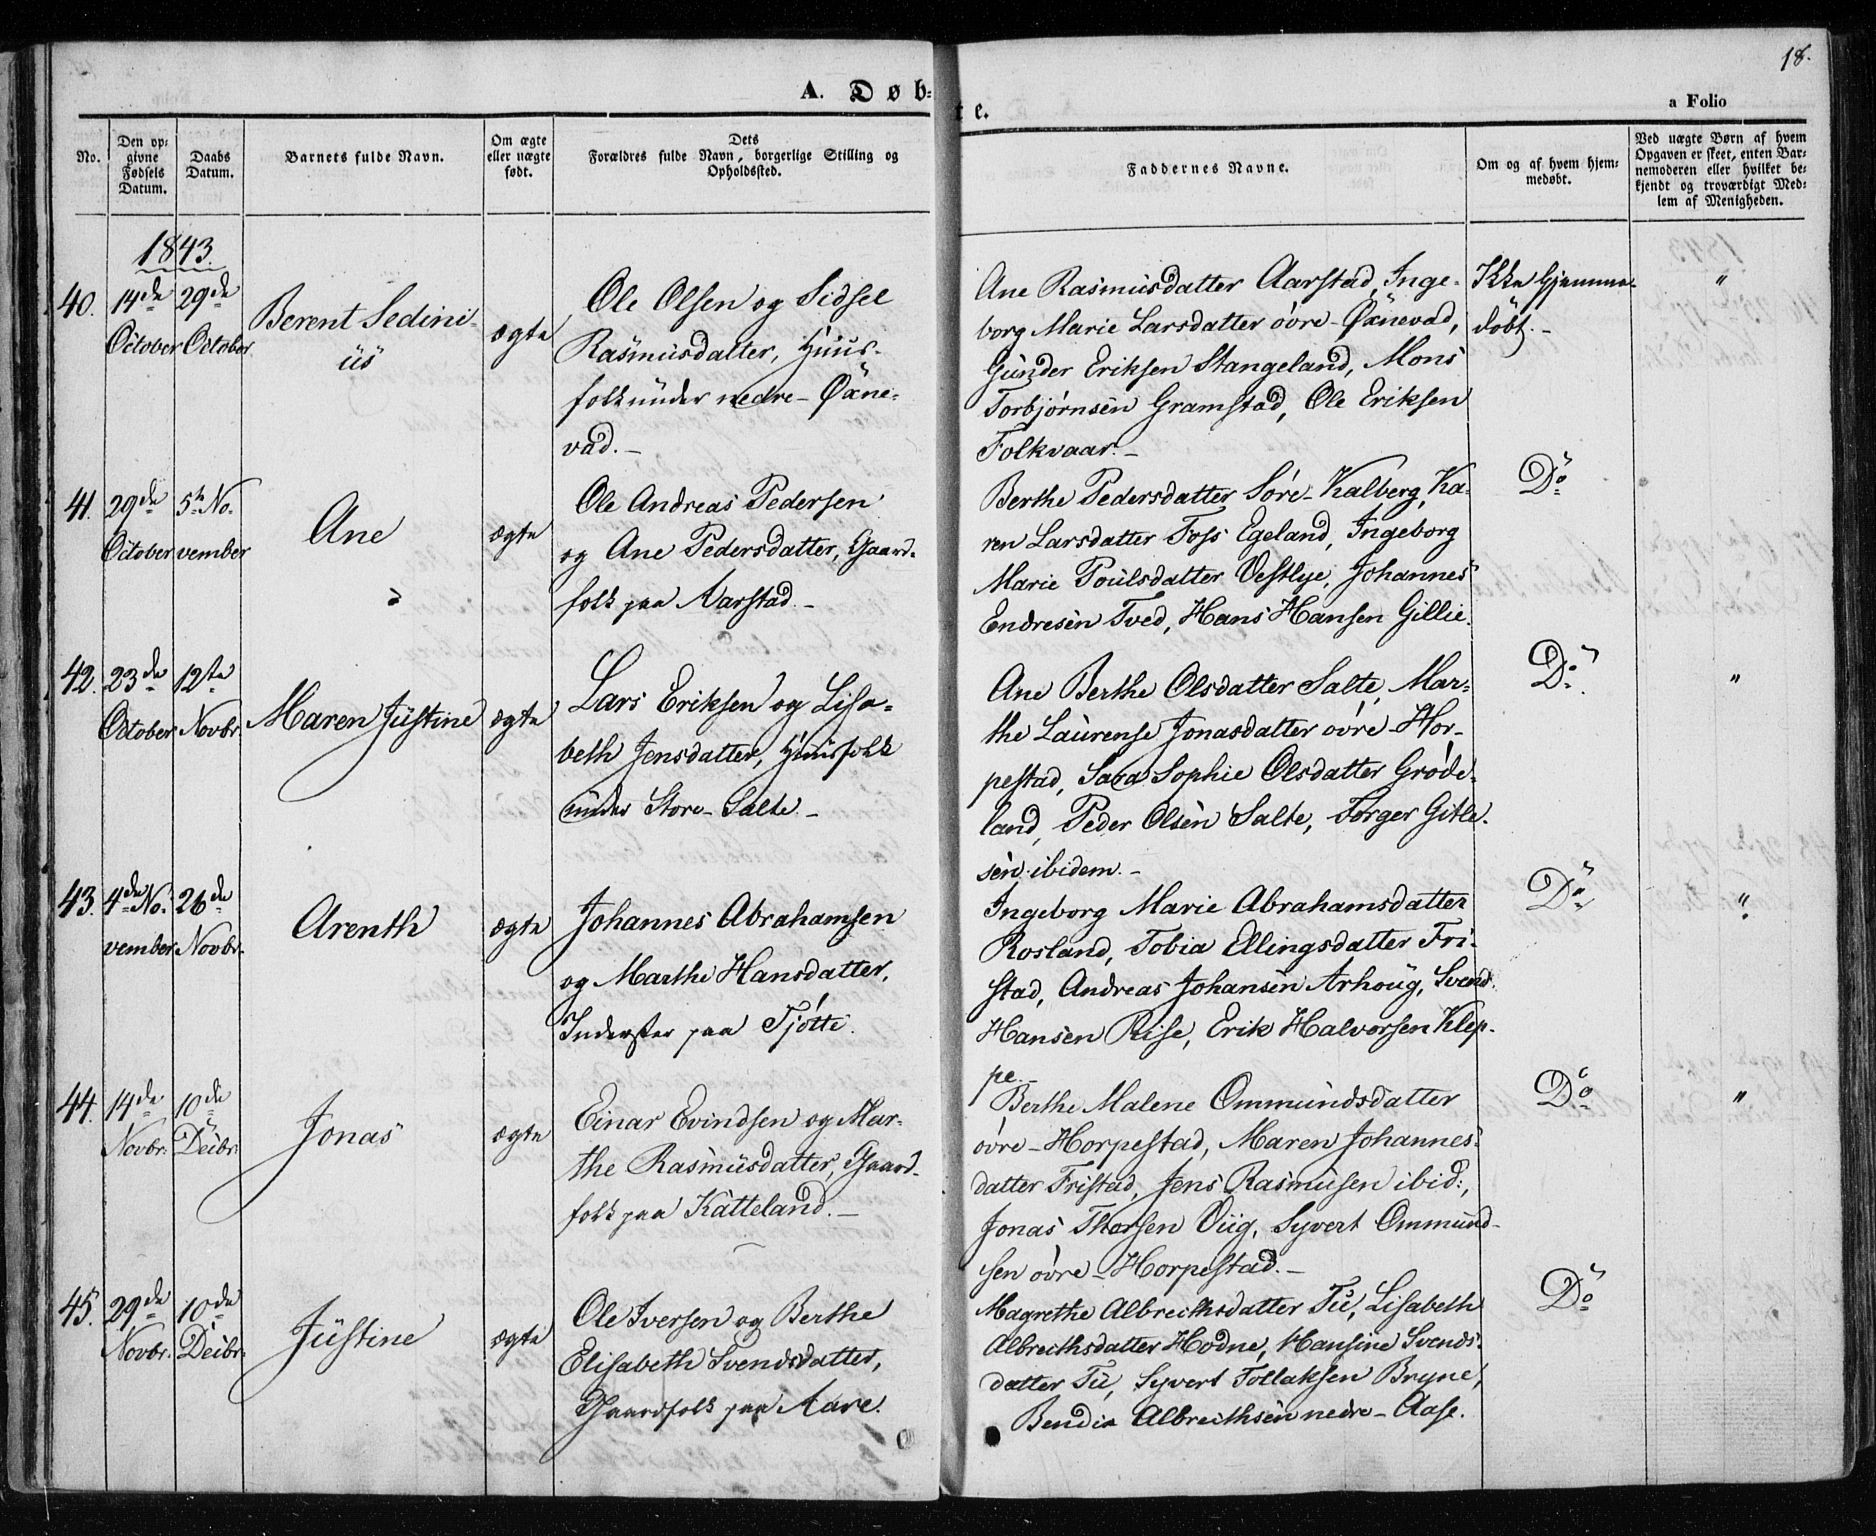 18.
A. Døbte.
a Folio
No.
Den op-
givne
Fødsels
Datum.
Daabs
Datum.
Barnets fulde Navn.
Om ægte
eller uægte
født.
Dets
Forældres fulde Navn, borgerlige Stilling og
Opholdssted.
Faddernes Navne.
Om og af hvem hjem-
medøbt.
Ved uægte Børn af hvem
Opgaven er skeet, enten Bar-
nemoderen eller hvilket be-
kjendt og troværdigt Med-
lem af Menigheden.
1843.
40.
14de
October
29de
October
Berent Sedini-
us
ægte
Ole Olsen og Sidsel
Rasmusdatter, Huus-
folk under nedre-Øxne-
vad.-
Ane Rasmusdatter Aarstad, Inge-
borg Marie Larsdatter övre-Øxnevad,
Gunder Eriksen Stangeland, Mons
Torbjørnsen Gramstad, Ole Eriksen
Folkvaar.-
Ikke hjemme-
döbt.-
"
41.
29de
October
5te No-
vember
Ane
ægte
Ole Andreas Pedersen
og Ane Pedersdatter, Gaard-
folk paa Aarstad.-
Berthe Pedersdatter Söre-Kalberg, Ka-
ren Larsdatter Foss Egeland, Ingeborg
Marie Poulsdatter Vestlye, Johannes
Endresen Tved, Hans Hansen Gillie.
Do
42.
23de
October
12te
Novbr.
Maren Justine
ægte
Lars Eriksen og Lisa-
beth Jensdatter, Huusfolk
under Store-Salte.-
Ane Berthe Olsdatter Salte, Mar-
the Laurense Jonasdatter övre-Hor-
pestad, Sara Sophie Olsdatter Gröde-
land, Peder Olsen Salte, Torger Gitle-
sen ibidem.-
Do
"
43.
4de No-
vember
26de
Novbr.
Arenth
ægte
Johannes Abrahamsen
og Marthe Hansdatter,
Inderster paa Tjötte.
Ingeborg Marie Abrahamsdatter
Rosland, Tobia Ellingsdatter Fri-
stad, Andreas Johansen Arhoug, Svend
Hansen Rise, Erik Halvorsen Klep-
pe.-
Do
"
44.
14de
Novbr.
10de
Decbr.
Jonas
ægte
Einar Evindsen og Mar-
the Rasmusdatter, Gaard-
folk paa Katteland.-
Berthe Malene Ommundsdatter
övre-Horpestad, Maren Johannes-
datter Fristad, Jens Rasmusen ibid.,
Jonas Thorsen Viig, Syvert Ommund-
sen övre-Horpestad.-
Do
"
45.
29de
Novbr.
10de
Decbr.
Justine
ægte
Ole Iversen og Berthe
Elisabeth Svendsdatter,
Gaardfolk paa Aare.
Magrethe Albrecthsdatter Tu, Lisabeth
Albrecthsdatter Hodne, Hansine Svends-
datter Tu, Syvert Tollaksen Bryne,
Bendix Albrecthsen nedre-Aase.
Do